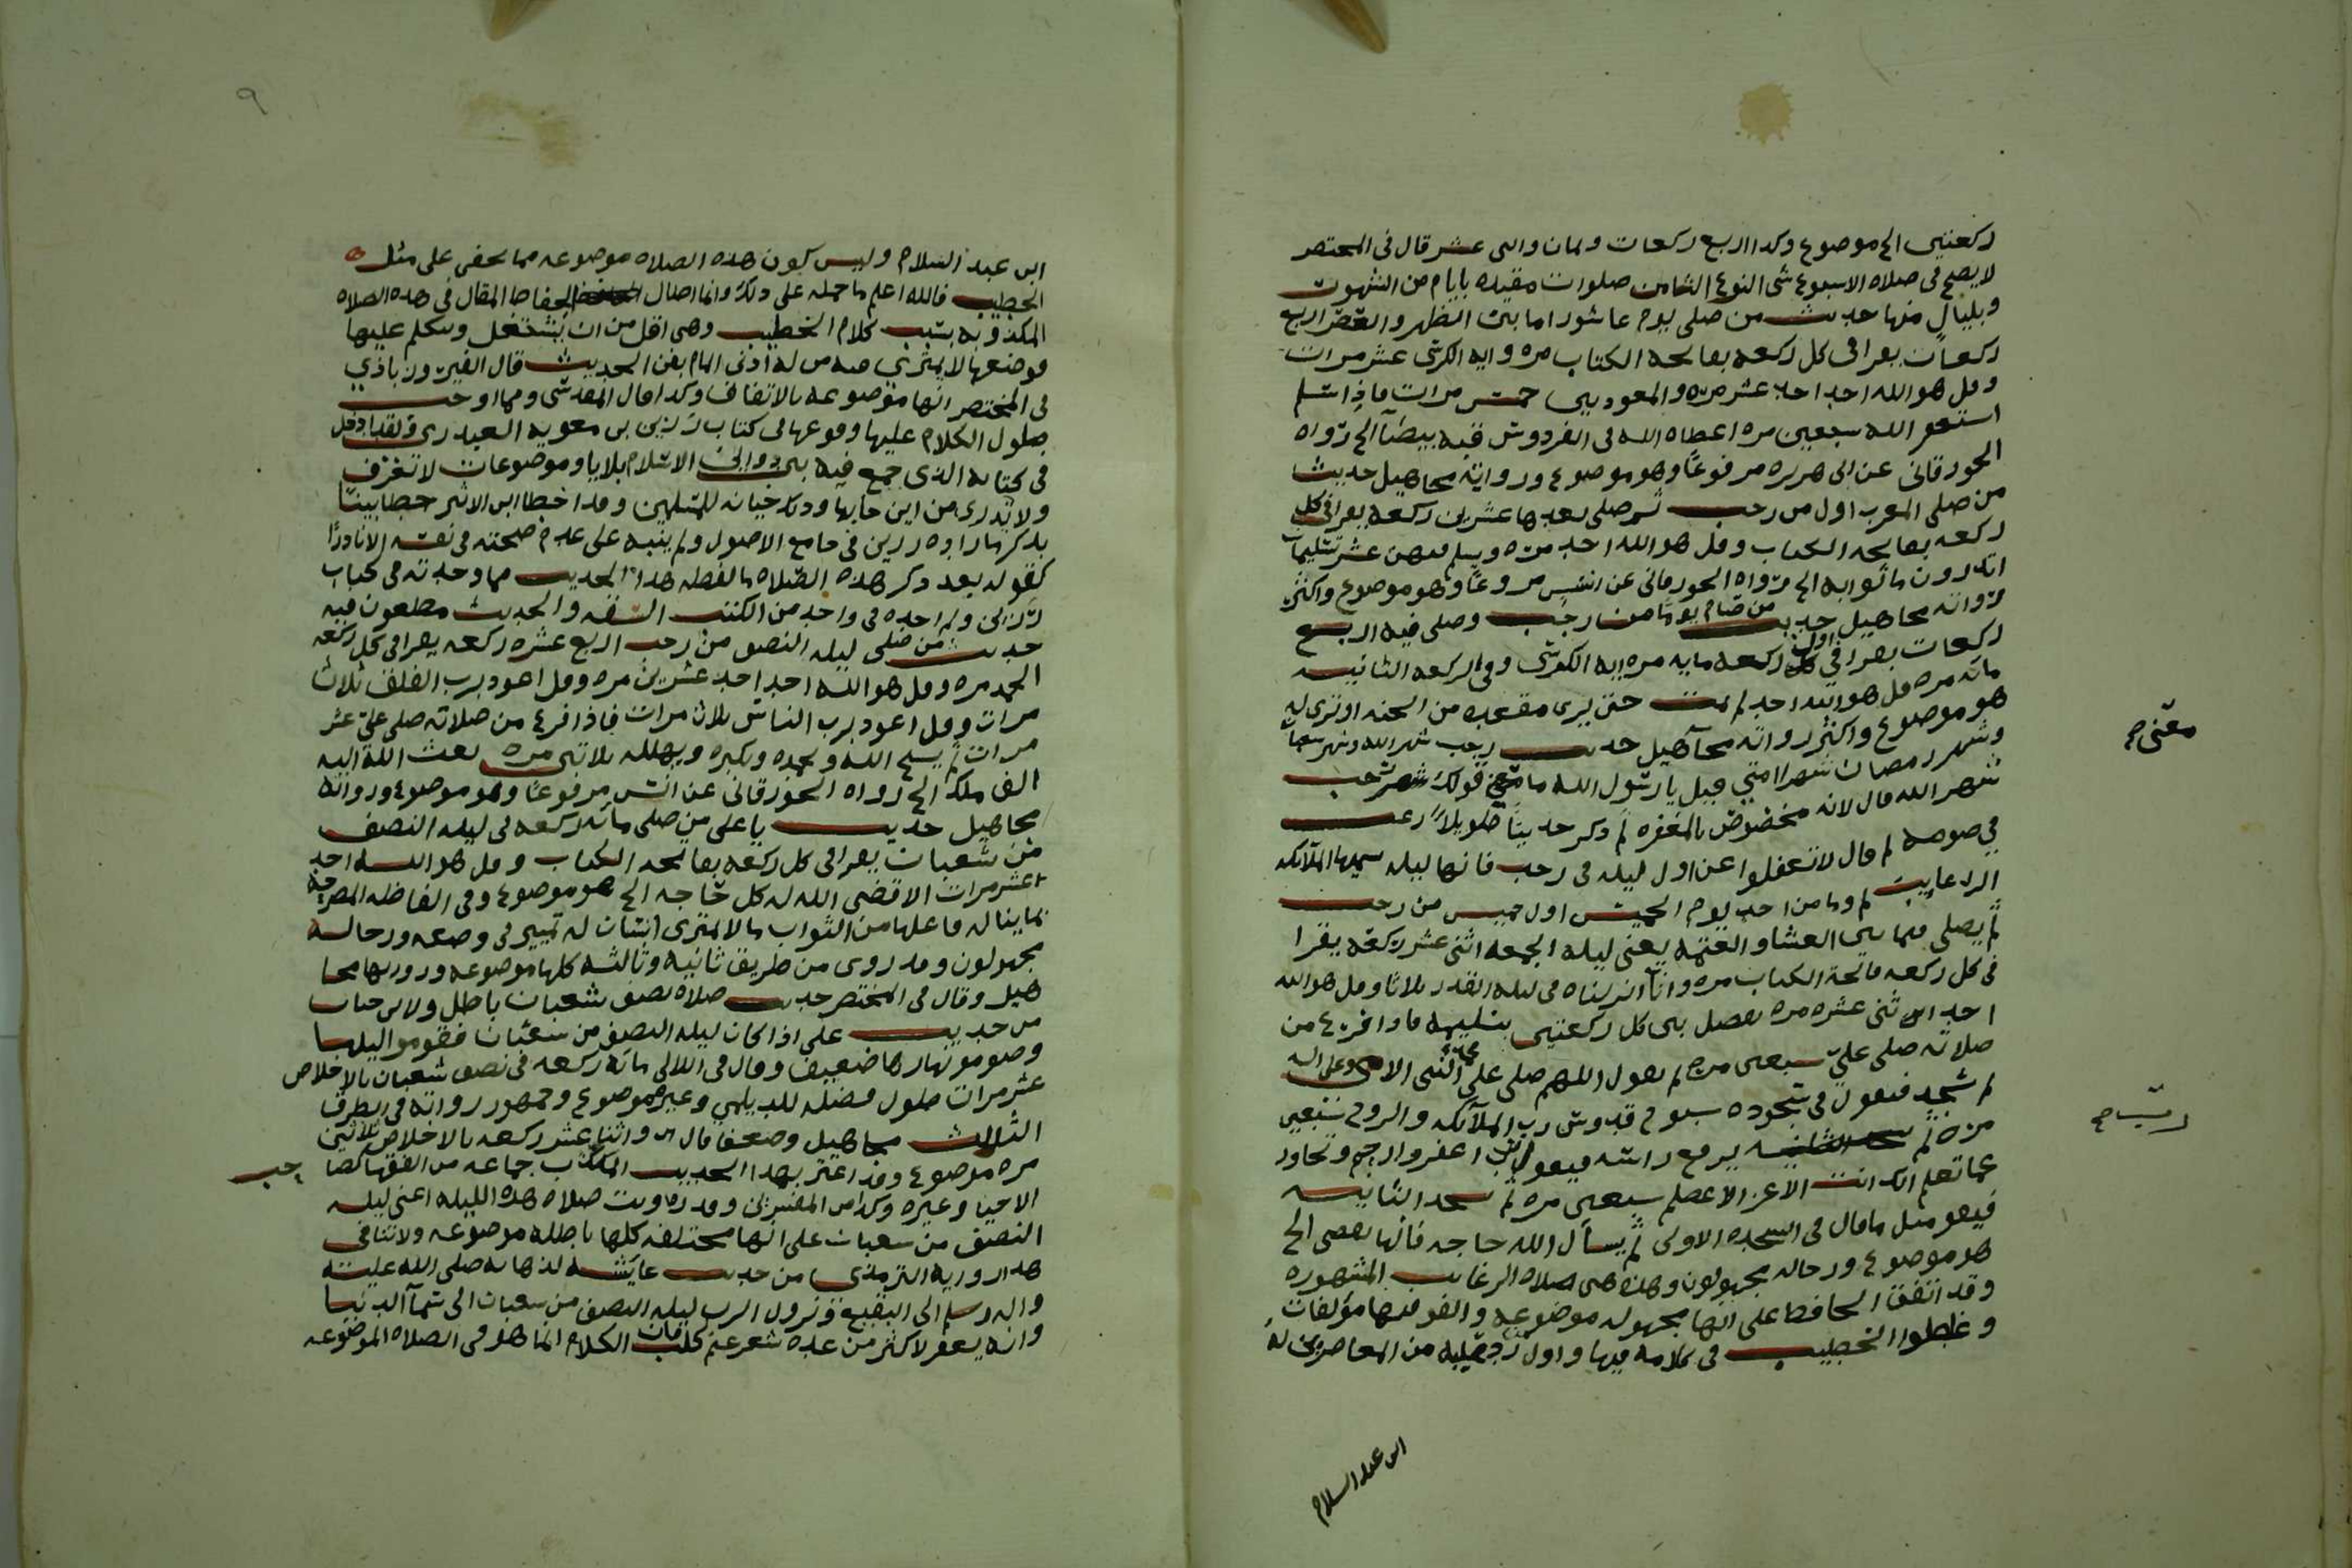 ركعتين الح موضوع وكذا اربع ركعات وثمان واثنى عشر قال فى المختصر
لا يصح فى صلاه الاسبوع شى النوع الثامن صلوات مقيده بايام من الشهور
وبليال منها حديث من صلى يوم عاشورا ما بين الظهر والعصر اربع
ركعات يقرا فى كل ركعه بفاتحه الكتاب مره وايه الكرسى عشر مرات
وقل هو الله احد احد عشر مره والمعوذتين خمس مرات فاذا سلم
استغفر الله سبعين مره اعطاه الله فى الفردوس قبه بيضا الح رواه
الجورقانى عن ابى هريره مرفوعا وهو موضوع ورواته مجاهيل حديث
من صلى المغرب اول من رجب ثم صلى بعدها عشرين ركعه يقرا فى كل
ركعه بفاتحه الكتاب وقل هو الله احد مره ويسلم فيهن عشر تسليمات
اتدرون ما ثوابه الح رواه الجورقانى عن انس مرفوعا وهو موضوع واكثر
رواته مجاهيل حديث من صام يوما من رجب وصلى فيه اربع
ركعات يقرا فى اول ركعه مايه مره ايه الكرسى وفى الركعه الثانيه
مائه مره قل هو الله احد لم يمت حتى يرى مقعده من الجنه او ترى له
هو موضوع واكثر رواته مجاهيل حديث رجب شهر الله وشهر شعبان
وشهر رمضان شهر امتي قيل يا رسول الله ما معنى قولك شهر رجب
شهر الله قال لانه مخصوص بالمغفره ثم ذكر حديثا طويلا رغب
في صومه ثم قال لا تغفلوا عن اول ليله فى رجب فانها ليله تسميها الملائكه
الرغايب ثم وما من احد يوم الخميس اول خميس من رجب
ثم يصلى فيما بين العشا والعتمه يعنى ليله الجمعه اثنى عشر ركعه يقرا
فى كل ركعه فاتحة الكتاب مره وانا انزلناه فى ليله القدر ثلاثا وقل هو الله
احد اثنى عشره مره يفصل بين كل ركعتين بتسليمه فاذا فرغ من
صلاته صلى عليّ سبعين مره ثم يقول اللهم صلى على محمد النبى الامى وعلى اله
ثم يسجد فيقول فى سجوده سبوح قدوس رب الملائكه والروح سبعين
مره ثم يرفع راسه فيقول رب اغفر وارحم وتجاوز
عما تعلم انك انت الاعز الاعظم سبعين مره ثم يسجد الثانيه
فيقو مثل ما قال فى السجده الاولى ثم يسال الله حاجه فانها تقضى الح
هو موضوع ورجاله مجهولون وهذه هى صلاه الرغايب المشهوره
وقد اتفق الحافظ على انها مجهوله موضوعه والفو فيها مؤلفات
وغلطوا الخطيب فى كلامه فيها واول من رد عليه من المعاصرين له
ابن عبد السلام
معنى ح
ابن عبد السلام وليس كون هذه الصلاه موضوعه مما يخفى على مثل
الخطيب فالله اعلم ما حمله على ذلك وانما اطال الحفاظ المقال فى هذه الصلاه
المكذوبه بسبب كلام الخطيب وهى اقل من ان يشتغل ويتكلم عليها
فوضعها لا يمترى فيه من له ادنى المام بفن الحديث قال الفيروزباذي
فى المختصر انها موضوعه بالاتفاق وكذا قال المقدسى ومما اوجب
طول الكلام عليها وقوعها فى كتاب رزين بن معويه العبدرى ولقد ادخل
فى كتابه الذى جمع فيه بين دواوين الاسلام بلايا وموضوعات لا تعرف
ولا يدرى من اين جا بها وذلك خيانه للمسلمين وقد اخطا ابن الاثير خطا بينا
بذكرها زاده رزين فى جامع الاصول ولم ينبه على عدم صحته فى نفسه الا نادرا
كقوله بعد ذكر هذه الصلاه ما لفظه هذا الحديث مما وجدته فى كتاب
رزين ولم اجده فى واحد من الكتب السته والحديث مطعون فيه
حديث من صلى ليله النصف من رجب اربع عشره ركعه يقرا فى كل ركعه
الحمد مره وقل هو الله احد احد عشرين مره وقل اعوذ برب الفلق ثلاث
مرات وقل اعوذ برب الناس ثلاث مرات فاذا فرغ من صلاته صلى عليّ عشر
مرات ثم يسبح الله ويحمده ويكبره ويهلله ثلاثين مره بعث الله اليه
الف ملك الح رواه الجورقانى عن انس مرفوعا وهو موضوع ورواته
مجاهيل حديث يا على من صلى مائه ركعه فى ليله النصف
من شعبان يقرا فى كل ركعه بفاتحه الكتاب وقل هو الله احد
عشر مرات الا قضى الله له كل حاجه الح هو موضوع وفى الفاظه المصرحه
بما يناله فاعلها من الثواب ما لا يمترى انسان له تمييز فى وضعه ورجاله
مجهولون وقد روى من طريق ثانيه وثالثه كلها موضوعه ورواتها مجا
هيل وقال فى المختصر حديث صلاه نصف شعبان باطل ولابن حبان
من حديث على اذا كان ليله النصف من شعبان فقوموا ليلها
وصوموا نهارها ضعيف وقال فى اللالى مائه ركعه فى نصف شعبان بالاخلاص
عشر مرات مع طول فضله للديلمي وغيره موضوع وجمهور رواته فى الطرق
الثلاث مجاهيل وضعفا قال واثنا عشر ركعه بالاخلاص ثلاثين
مره موضوع وقد اغتر بهذا الحديث جماعه من الفقها كصاحب
الاحيا وغيره وكذا من المفسرين وقد رويت صلاه هذه الليله اعنى ليله
النصف من شعبان على انحا مختلفه كلها باطله موضوعه ولا تنافى
هذا روايه الترمذى من حديث عايشه لذهابه صلى الله عليه
واله وسلم الى البقيع ونزول الرب ليله النصف من شعبان الى سما الدنيا
وانه يغفر لاكثر من عده شعر غنم كلب فان الكلام انما هو فى الصلاه الموضوعه